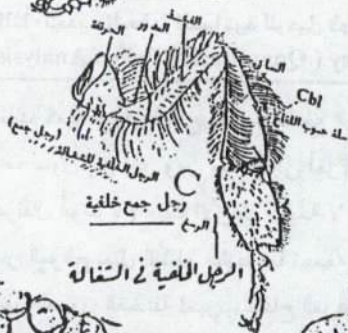 الحرقفة
المدور
الفخذ
الساق
Cbl
سلة حبوب اللقاح
(رجل جمع)
الرجل الخلفية للشغالة
C
رجل جمع خلفية
الرسغ
الرجل الخلفية في الشغالة